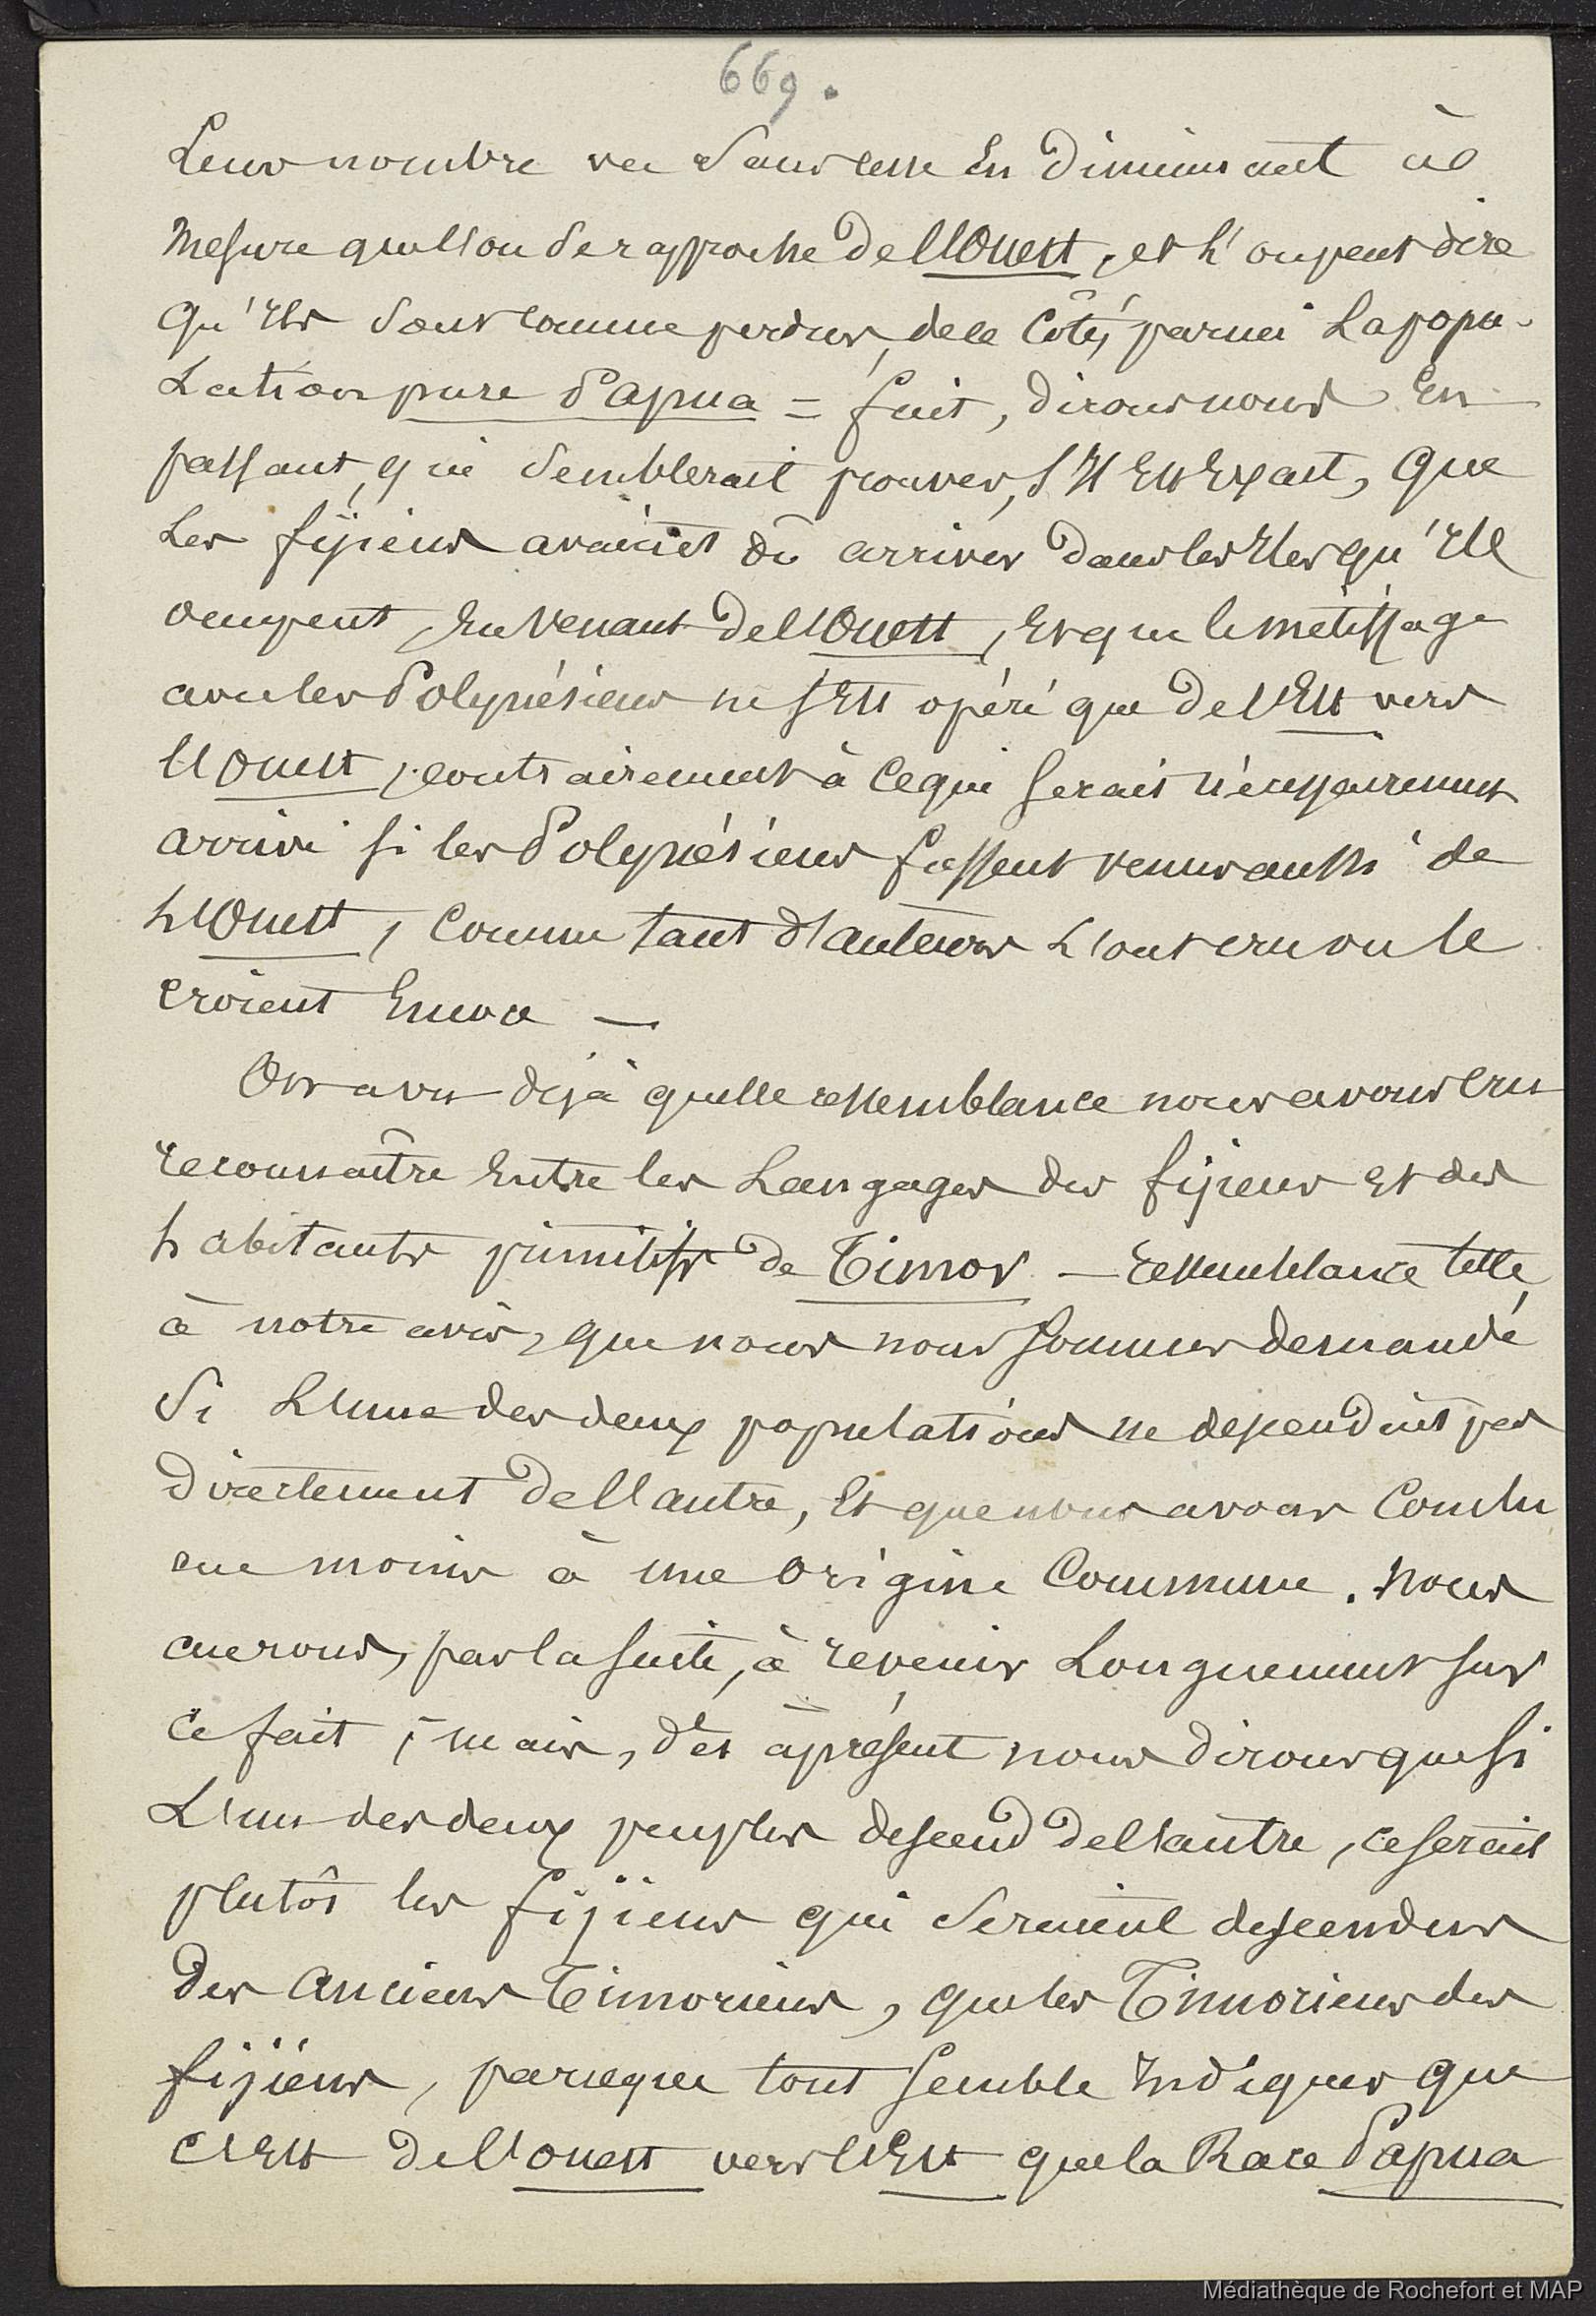 669.
Leur nombre va sans cesse en diminuant à
mesure que l'on se rapproche de l'Ouest, et l'on peut dire
qu'ils sont comme perdus, de ce côté, parmi la popu-
lation pure Papua = fait, dirons nous en
passant, qui semblerait prouver, s'il est exact, que
les fijiens avaient dû arriver dans les îles qu'ils
occupent, en venant de l'Ouest, et que le métissage
avec les Polynésiens ne s'est opéré que de l'Est vers
l'Ouest, contrairement à ce qui serait nécessairement
arrivé si les Polynésiens fussent venus aussi de
l'Ouest, comme tant d'auteurs l'ont cru ou le
croient encore —
On a vu déjà quelle ressemblance nous avons cru
reconnaître entre les langages des fijiens et des
habitants primitifs de Timor — ressemblance telle,
à notre avis, que nous nous sommes demandé
si l'une des deux populations ne descendait pas
directement de l'autre, et que nous avons conclu
au moins à une origine commune. Nous
aurons, par la suite, à revenir longuement sur
ce fait ; mais, dès à présent nous dirons que si
l'un des deux peuples descend de l'autre, ce serait
plutôt les fijiens qui seraient descendus
des anciens Timoriens, que les Timoriens des
fijiens, parceque tout semble indiquer que
c'est de l'ouest vers l'Est que la Race Papua
Médiathèque de Rochefort et MAP